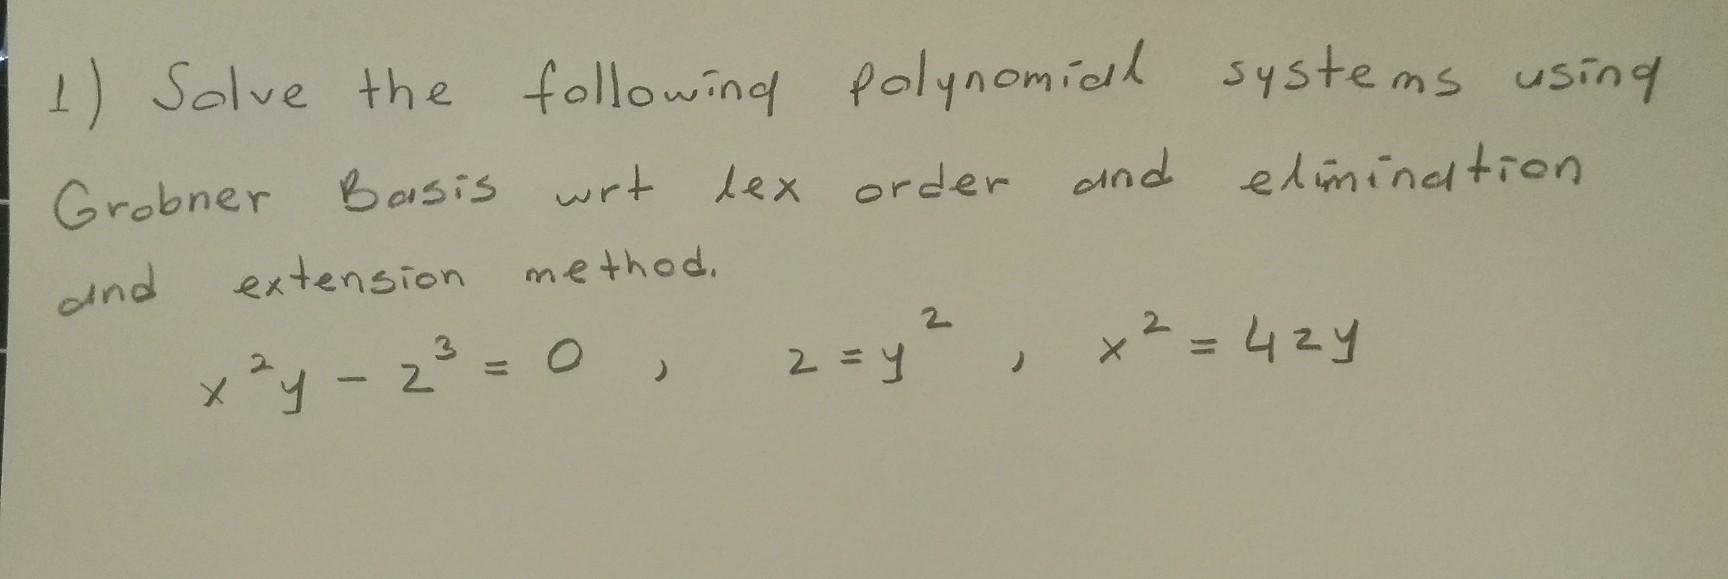 1) Solve the following polynomial systems using
Grobner Basis wrt lex order and elimination
and extension method.
x²y - z³ = 0 , z = y² , x² = 4zy